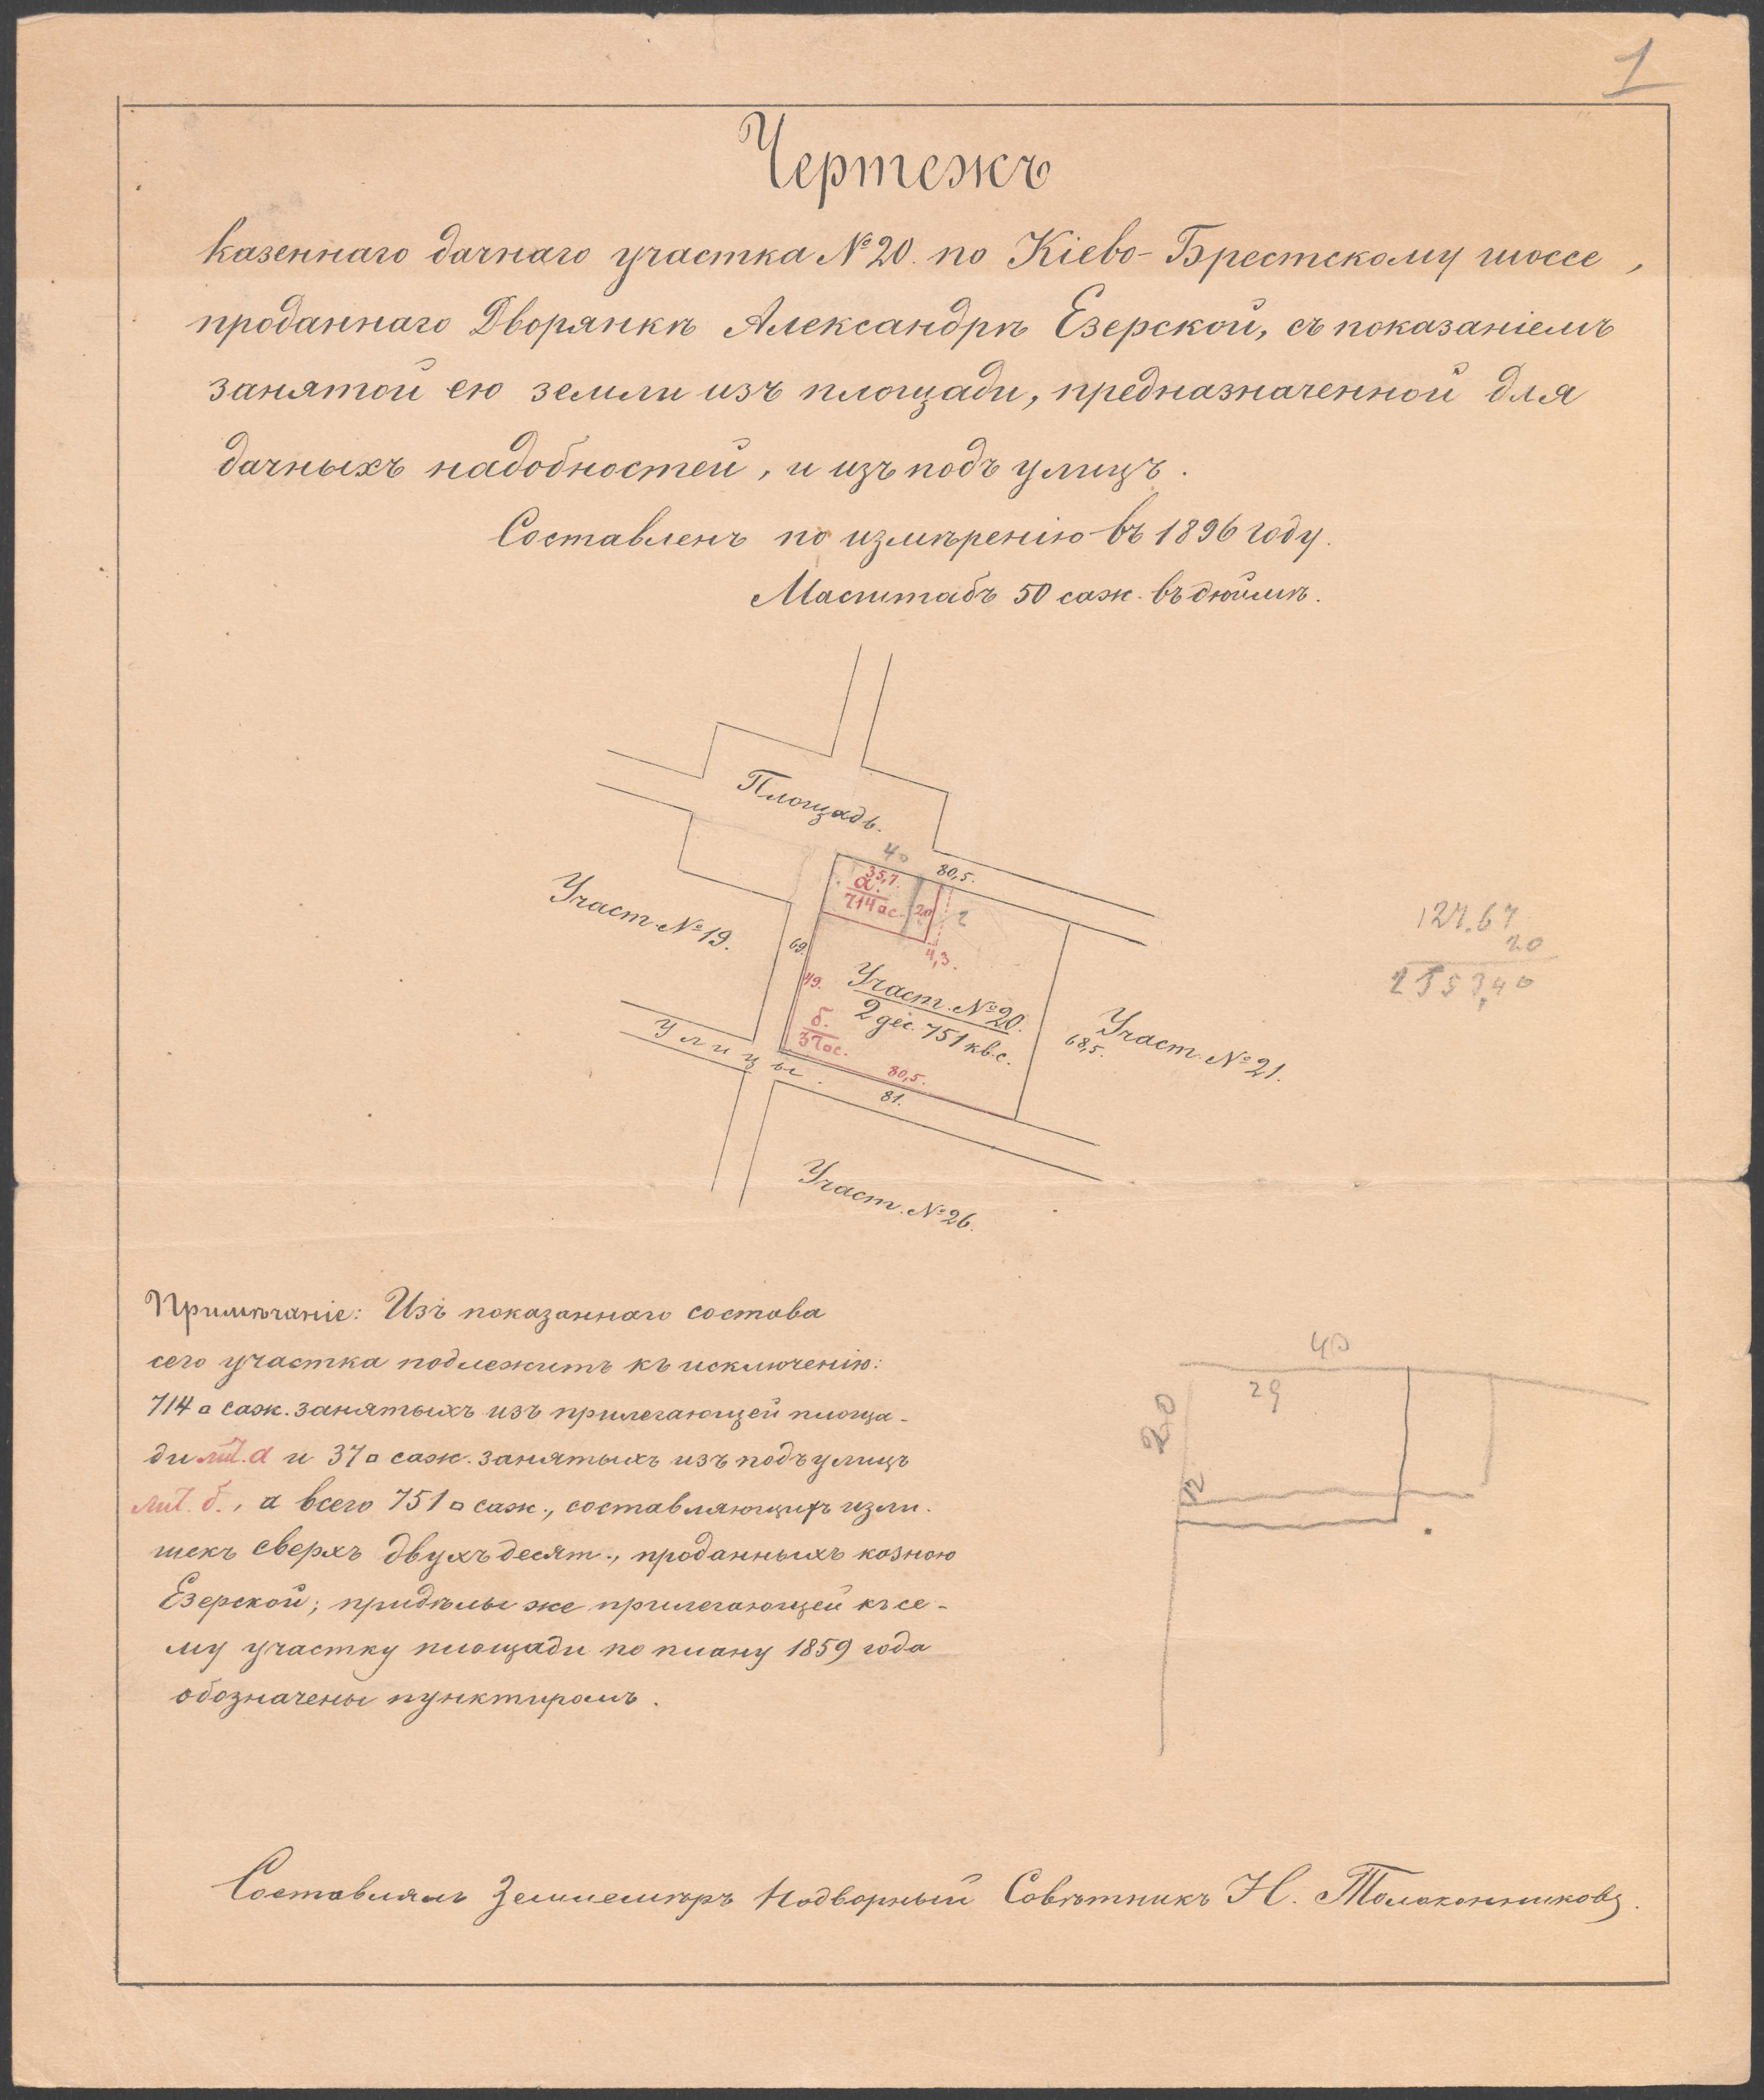 1
Чертежъ
казеннаго дачнаго участка №20. по Кіево-Брестскому шоссе,
проданнаго Дворянкѣ Александрѣ Езерской, съ показаніемъ
занятой ею земли изъ площади, предназначенной для
дачныхъ надобностей, и изъ подъ улицъ.
Составленъ по измѣренію въ 1896 году.
Масштабъ 50 саж. въ дюймѣ.
Площадь.
40
80,5.
35,7.
а.
714□с.
20
2
4,3.
Участ. №19.
69.
49.
Участ. №20.
2 дес. 751 кв.с.
б.
37□с.
Улицы.
80,5.
81.
68,5.
Участ. №21.
Участ. №26.
127.67
20
2553,40
Примѣчаніе: Изъ показаннаго состава
сего участка подлежитъ къ исключенію:
714□ саж. занятыхъ изъ прилегающей площа-
ди лит. а и 37□ саж. занятыхъ изъ подъ улицъ
лит. б., а всего 751□ саж., составляющихъ изли-
шекъ сверхъ двухъ десят., проданныхъ казною
Езерской; придѣлы же прилегающей къ се-
му участку площади по плану 1859 года
обозначены пунктиромъ.
40
29
20
12
Составлялъ Землемѣръ Надворный Совѣтникъ Н. Толоконниковъ.